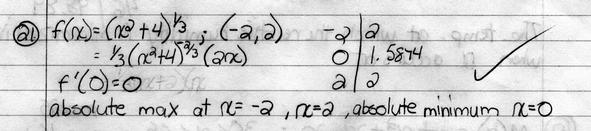 21. f(x) = (x² + 4)^⅓ ; (-2, 2) -2 | 2
= ⅓(x²+4)^-⅔ (2x) 0 | 1.5874 ✓
f'(0) = 0 2 | 2
absolute max at x = -2, x=2, absolute minimum x=0